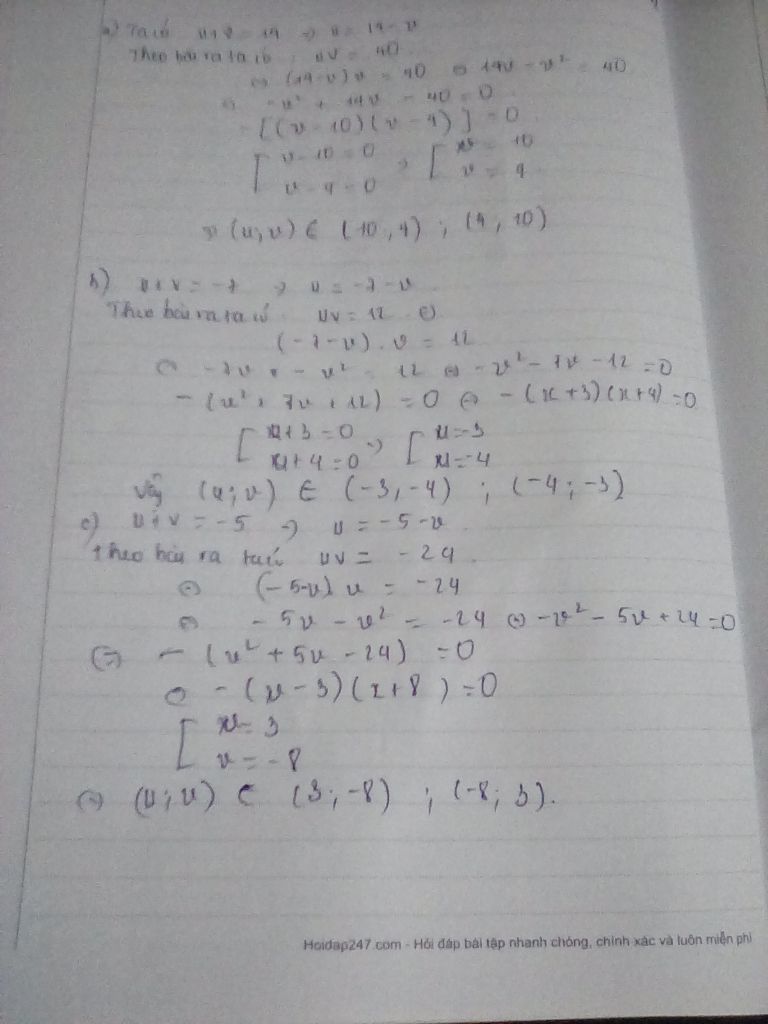 a) Ta có u+v = 14 => u = 14 - v
Theo bài ra ta có : uv = 40
<=> (14-v)v = 40 <=> 14v - v² = 40
<=> -v² + 14v - 40 = 0
-[(v-10)(v-4)] = 0
[ v-10 = 0 => [ v = 10
v-4 = 0 v = 4
=> (u,v) ∈ (10,4) ; (4,10)
b) u+v = -7 => u = -7-v
Theo bài ra ta có uv = 12 <=>
(-7-v).v = 12
<=> -7v - v² = 12 <=> -v² - 7v - 12 = 0
-(v² + 7v + 12) = 0 <=> -(x+3)(x+4) = 0
[ +3 = 0 => [ = -3
+4 = 0 = -4
Vậy (u;v) ∈ (-3,-4) ; (-4;-3)
c) u+v = -5 => u = -5-v
Theo bài ra ta có uv = -24
<=> (-5-v) v = -24
<=> -5v - v² = -24 <=> -v² - 5v + 24 = 0
<=> -(v² + 5v - 24) = 0
<=> -(v-3)(x+8) = 0
[ v = 3
v = -8
<=> (u;v) ∈ (3;-8) ; (-8;3).
Hoidap247.com - Hỏi đáp bài tập nhanh chóng, chính xác và luôn miễn phí